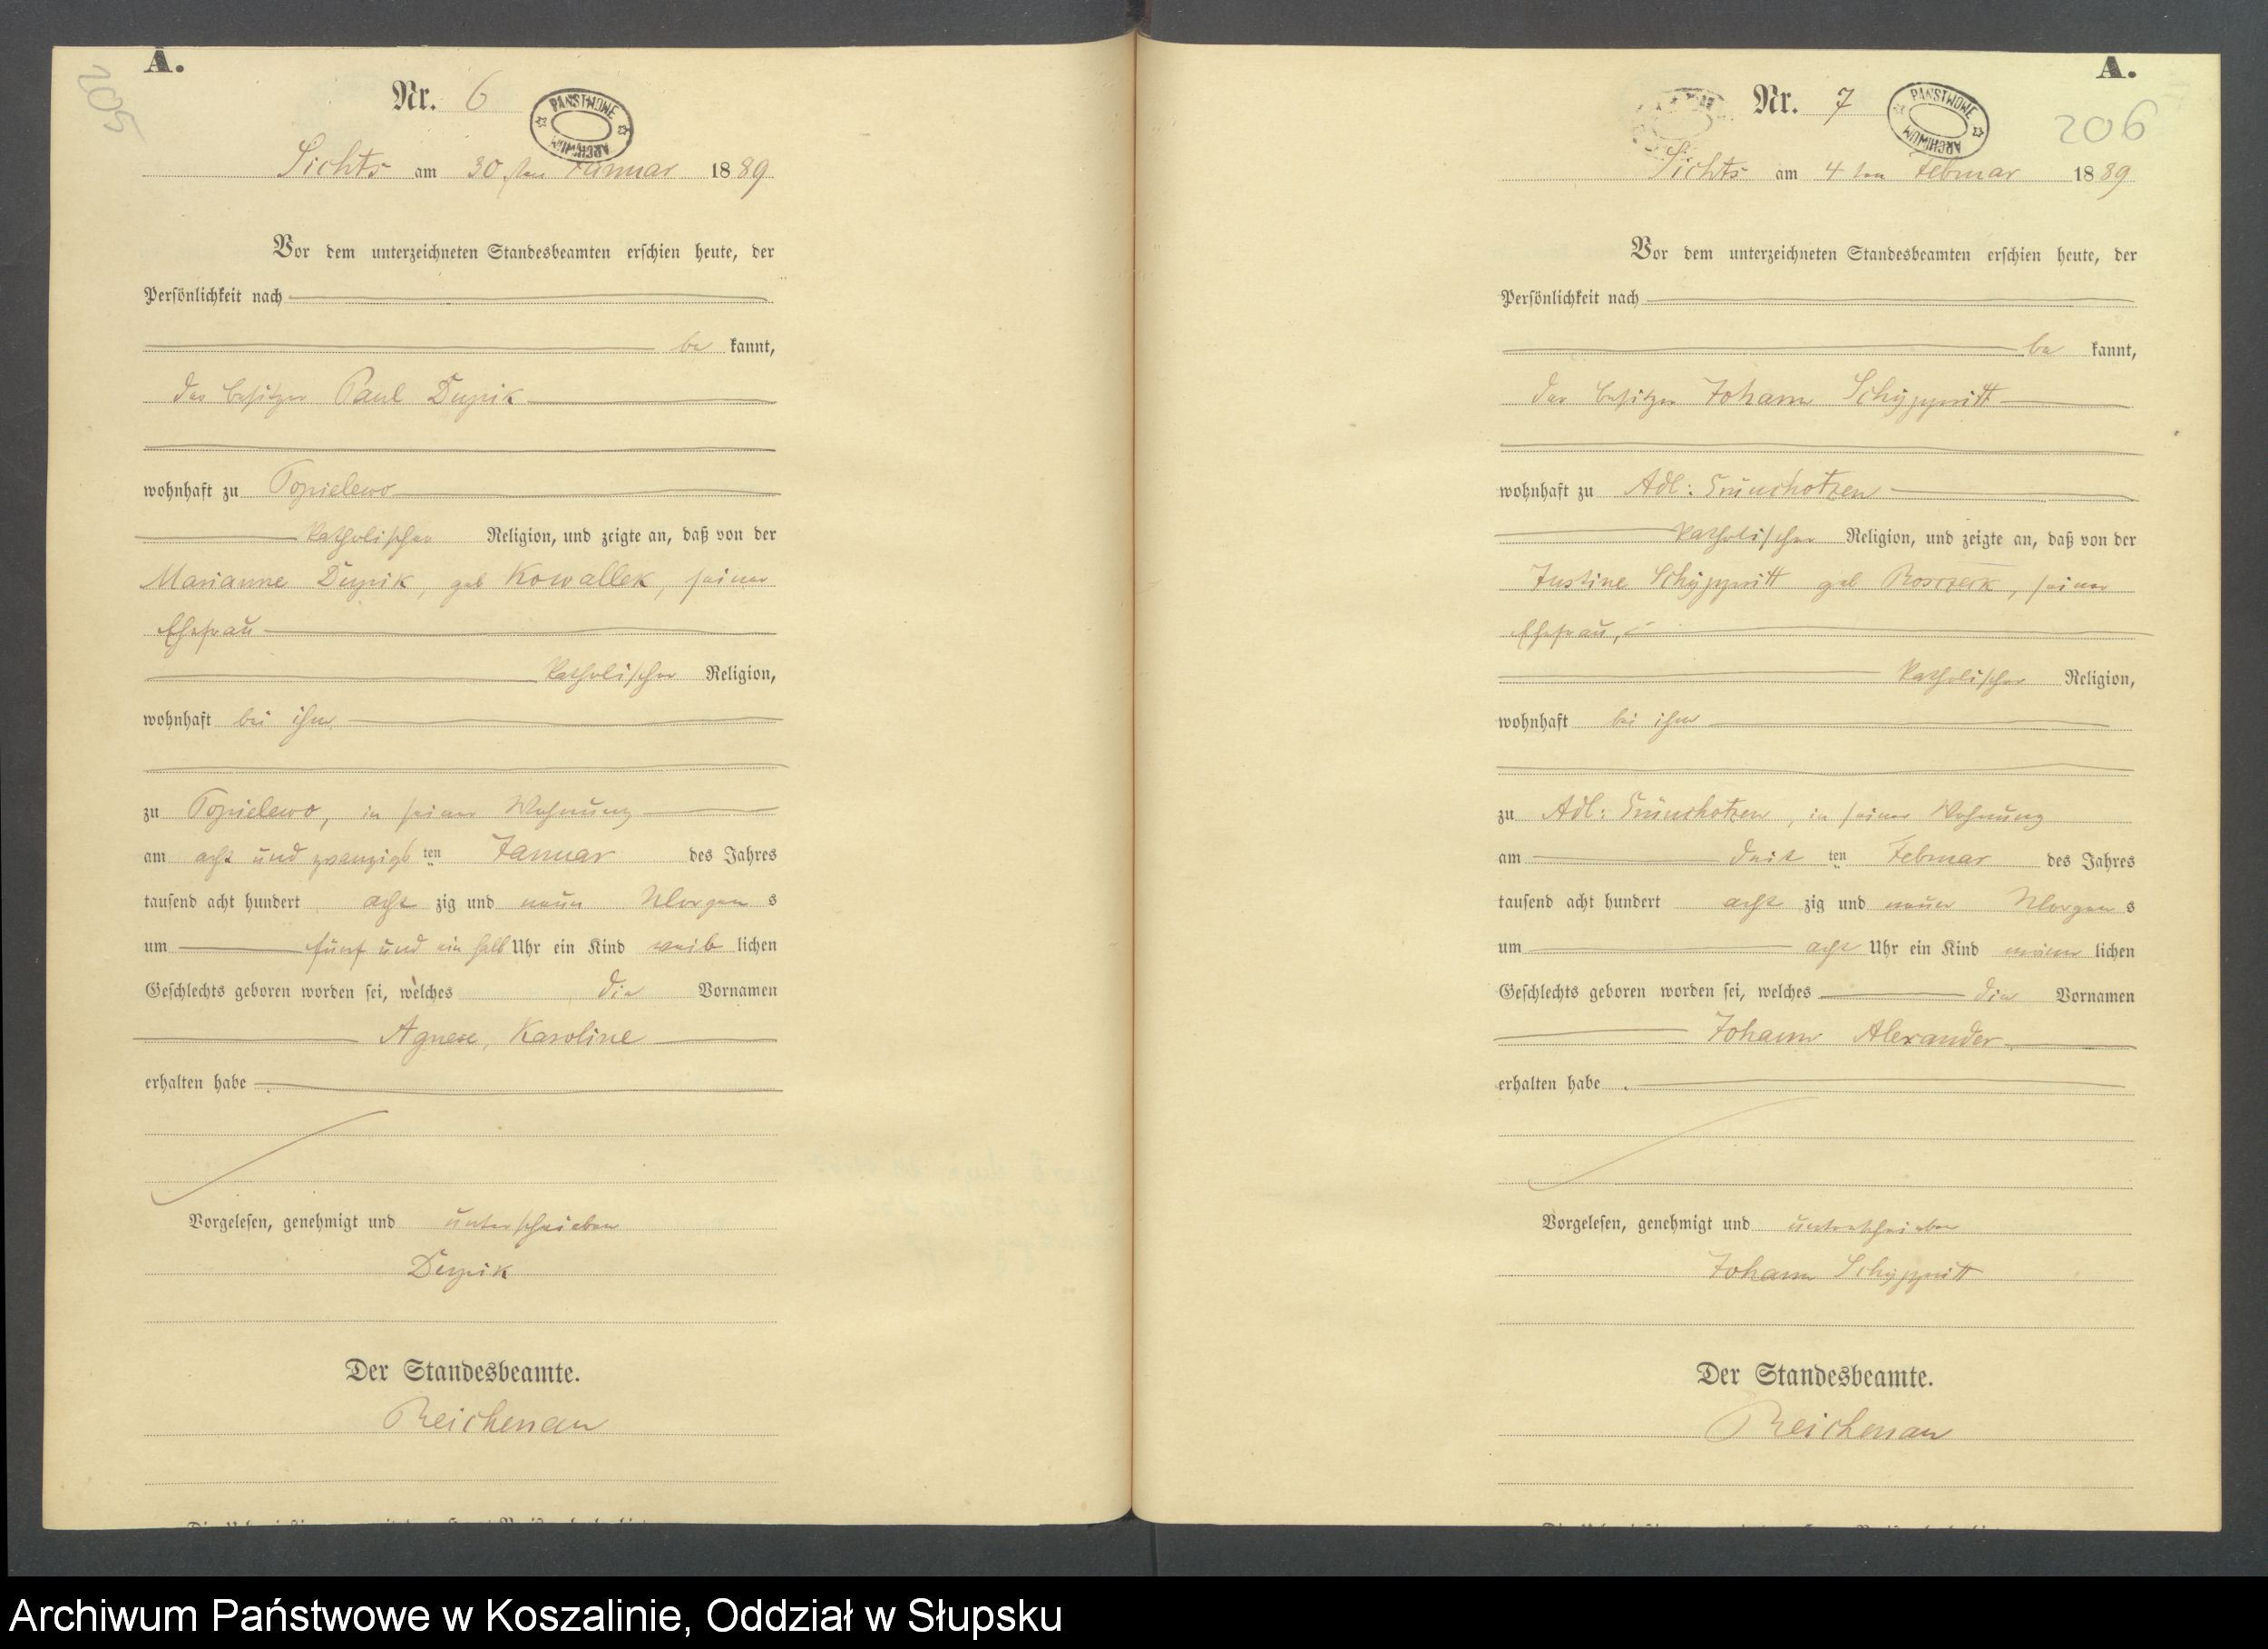 205
A.
Nr. 6
PAŃSTWOWE ARCHIWUM
Sichts am 30 ten Januar 1889
Vor dem unterzeichneten Standesbeamten erschien heute, der
Persönlichkeit nach
be kannt,
der Besitzer Paul Dupik
wohnhaft zu Topielewo
katholischer Religion, und zeigte an, daß von der
Marianne Dupik, geb Kowallek, seiner
Ehefrau
katholischer Religion,
wohnhaft bei ihm
zu Topielewo, in seiner Wohnung
am acht und zwanzigs ten Januar des Jahres
tausend acht hundert acht zig und neun Morgens
um fünf und ein halb Uhr ein Kind weib lichen
Geschlechts geboren worden sei, welches die Vornamen
Agnese, Karoline
erhalten habe
Vorgelesen, genehmigt und unterschrieben
Dupik
Der Standesbeamte.
Reichenau
A.
206
Nr. 7
PAŃSTWOWE ARCHIWUM
Sichts am 4 ten Februar 1889
Vor dem unterzeichneten Standesbeamten erschien heute, der
Persönlichkeit nach
be kannt,
der Besitzer Johann
wohnhaft zu Adl: Grünchotzen
katholischer Religion, und zeigte an, daß von der
Justine geb , seiner
Ehefrau,
katholischer Religion,
wohnhaft bei ihm
zu Adl: Grünchotzen, in seiner Wohnung
am drit ten Februar des Jahres
tausend acht hundert acht zig und neun Morgens
um acht Uhr ein Kind männ lichen
Geschlechts geboren worden sei, welches die Vornamen
Johann Alexander
erhalten habe.
Vorgelesen, genehmigt und unterschrieben
Johann
Der Standesbeamte.
Reichenau
Archiwum Państwowe w Koszalinie, Oddział w Słupsku